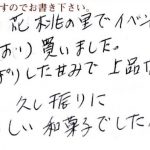 すのでお書き下さい。
花桃の里でイベン
おり買いました。
ぱりした甘みで 上品な
久し振りに
しい 和菓子でした